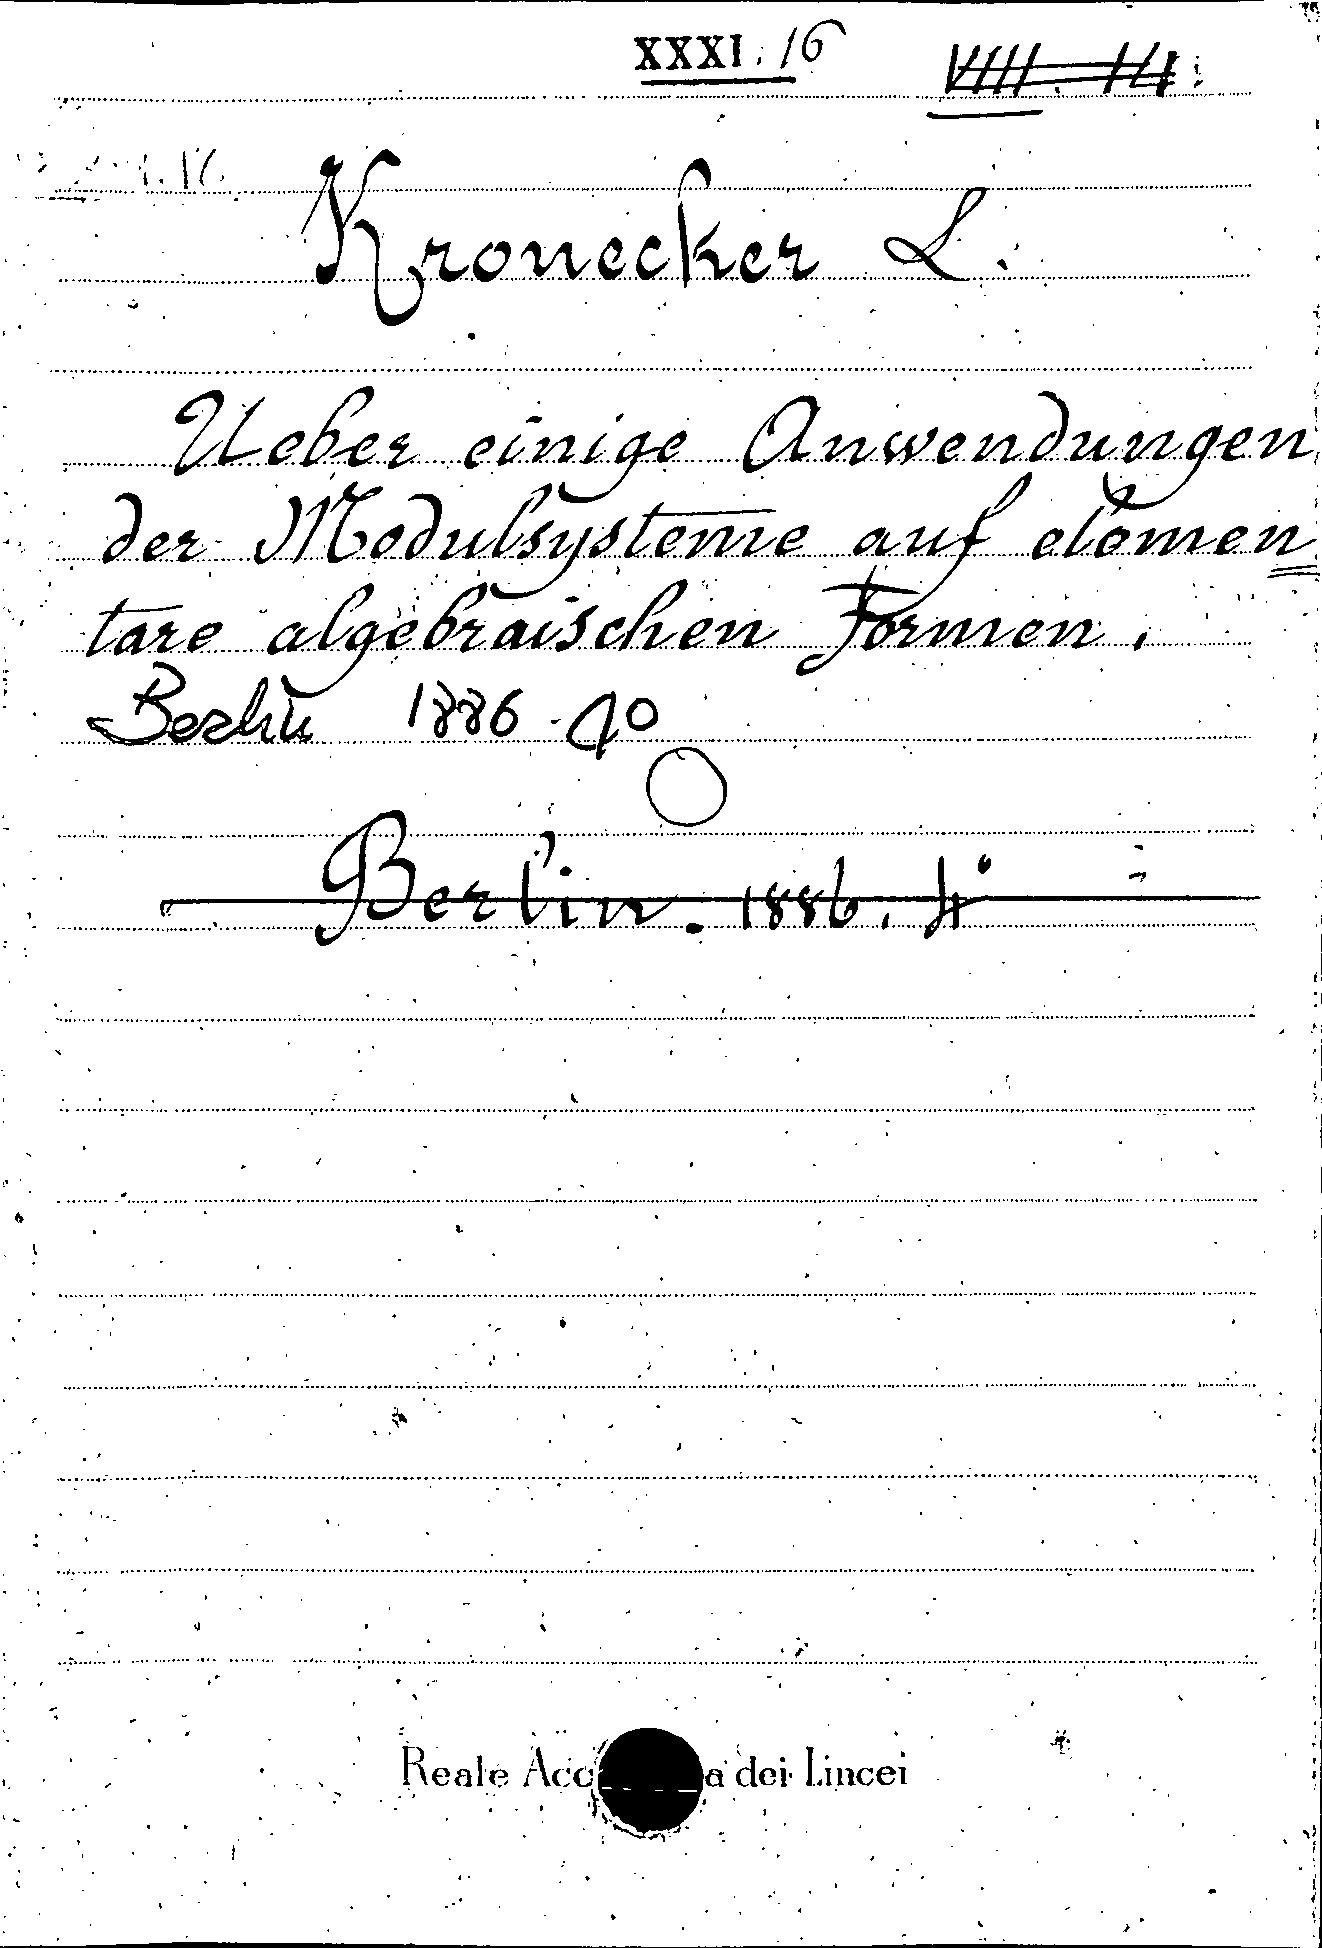 XXXI. 16
Kronecker L.
Ueber einige Anwendungen
der Modulsysteme auf elemen
tare algebraischen Formen.
Berlin 1886
Berlin. 1886. 4°
Reale Acc a dei Lincei